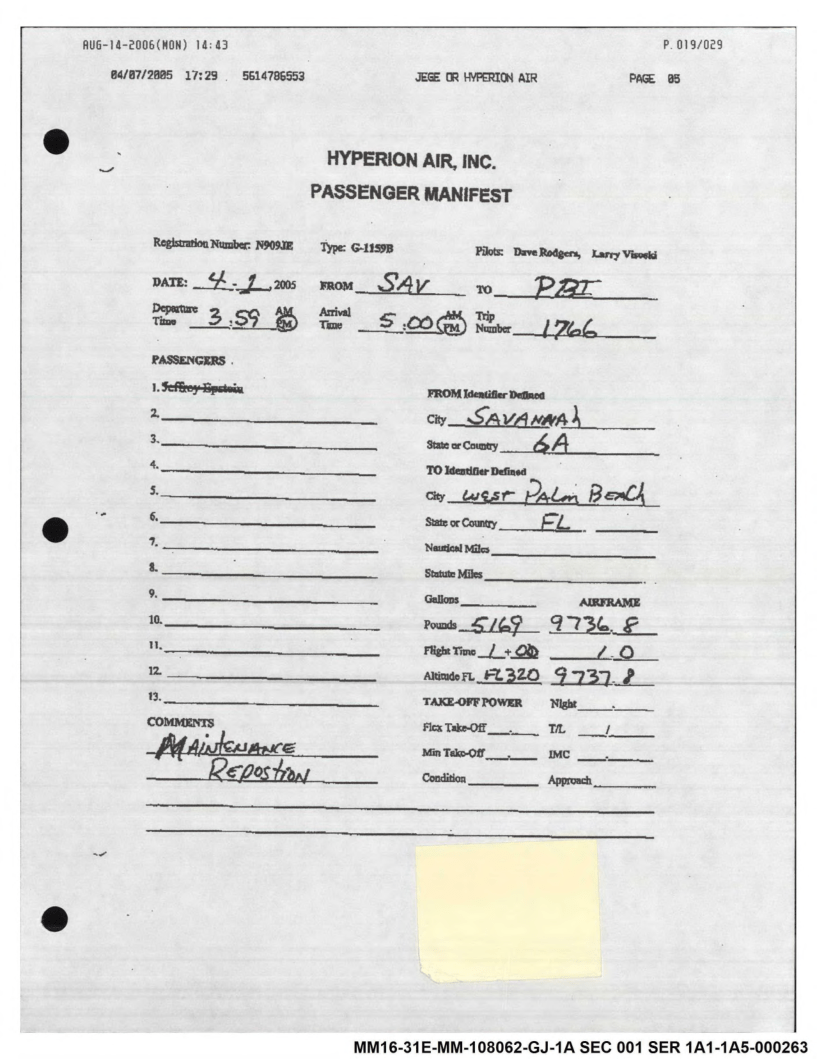 AUG-14-2006(MON) 14:43 P.019/029
04/07/2005 17:29 5614786553 JEGE OR HYPERION AIR PAGE 05
HYPERION AIR, INC.
PASSENGER MANIFEST
Registration Number: N909JE Type: G-1159B Pilots: Dave Rodgers, Larry Visoski
DATE: 4-1, 2005 FROM SAV TO PBI
Departure Time 3:59 AM PM Arrival Time 5:00 AM PM Trip Number 1766
PASSENGERS
1. Jeffrey Epstein
2.
3.
4.
5.
6.
7.
8.
9.
10.
11.
12.
13.
FROM Identifier Defined
City SAVANNAh
State or Country GA
TO Identifier Defined
City WEST PALm BEACh
State or Country FL
Nautical Miles
Statute Miles
Gallons AIRFRAME
Pounds 5169 9736.8
Flight Time 1+00 1.0
Altitude FL FL320 9737.8
TAKE-OFF POWER Night
Flex Take-Off T/L /
Min Take-Off IMC
Condition Approach
COMMENTS
MAINTENANCE
REPOSTION
MM16-31E-MM-108062-GJ-1A SEC 001 SER 1A1-1A5-000263